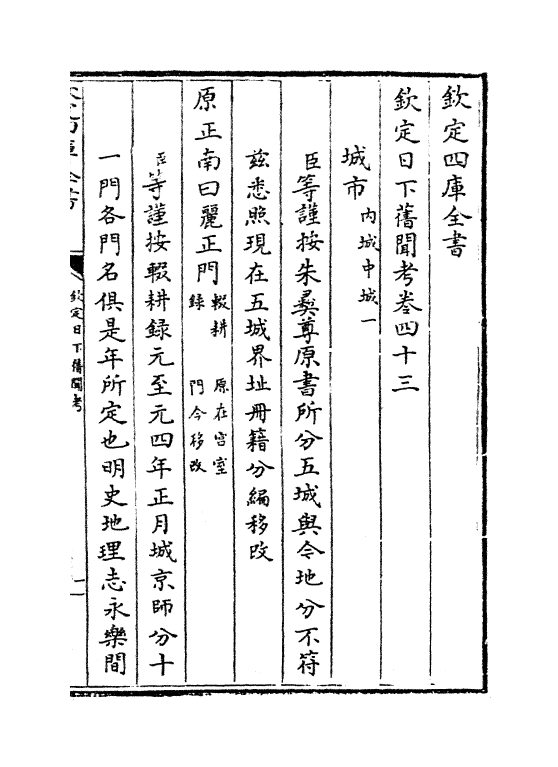 欽定四庫全書
欽定日下舊聞考巻四十三
城市 内城中城一
臣等謹按朱彛尊原書所分五城與今地分不符
兹悉照現在五城界址冊籍分編移改
原正南曰麗正門 輟耕録 原在宫室門今移改
臣等謹按輟耕錄元至元四年正月城京師分十
一門各門名俱是年所定也明史地理志永樂間
欽定日下舊聞考